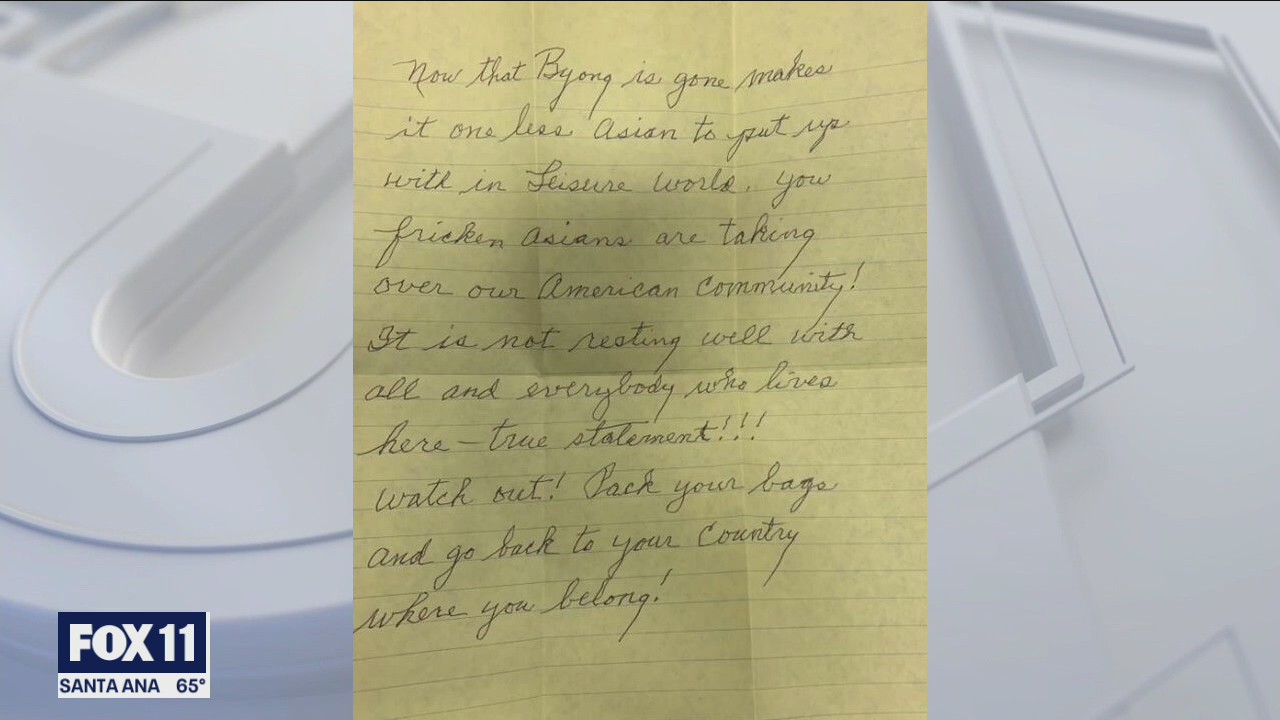 Now that Byong is gone makes
it one less Asian to put up
with in Leisure World. You
fricken Asians are taking
over our American Community!
It is not resting well with
all and everybody who lives
here – true statement!!!
Watch out! Pack your bags
and go back to your Country
where you belong!
FOX 11
SANTA ANA 65°